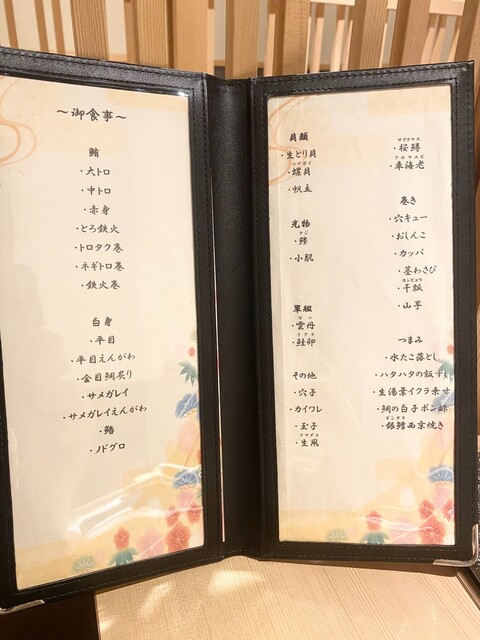 〜御食事〜
鮪
・大トロ
・中トロ
・赤身
・とろ鉄火
・トロタク巻
・ネギトロ巻
・鉄火巻
白身
・平目
・平目えんがわ
・金目鯛炙り
・サメガレイ
・サメガレイえんがわ
・鰆
・ノドグロ
貝類
・生とり貝
ツブガイ
・螺貝
・帆立
光物
アジ
・鯵
・小肌
軍艦
ウニ
・雲丹
イクラ
・鮭卵
その他
・穴子
・カイワレ
・玉子
ナマダコ
・生凧
サクラマス
・桜鱒
クルマエビ
・車海老
巻き
・穴キュー
・おしんこ
・カッパ
・茎わさび
カンピョウ
・干瓢
・山芋
つまみ
・水たこ落とし
・ハタハタの飯ずし
・生湯葉イクラ乗せ
・鯛の白子ポン酢
ギンダラ
・銀鱈西京焼き